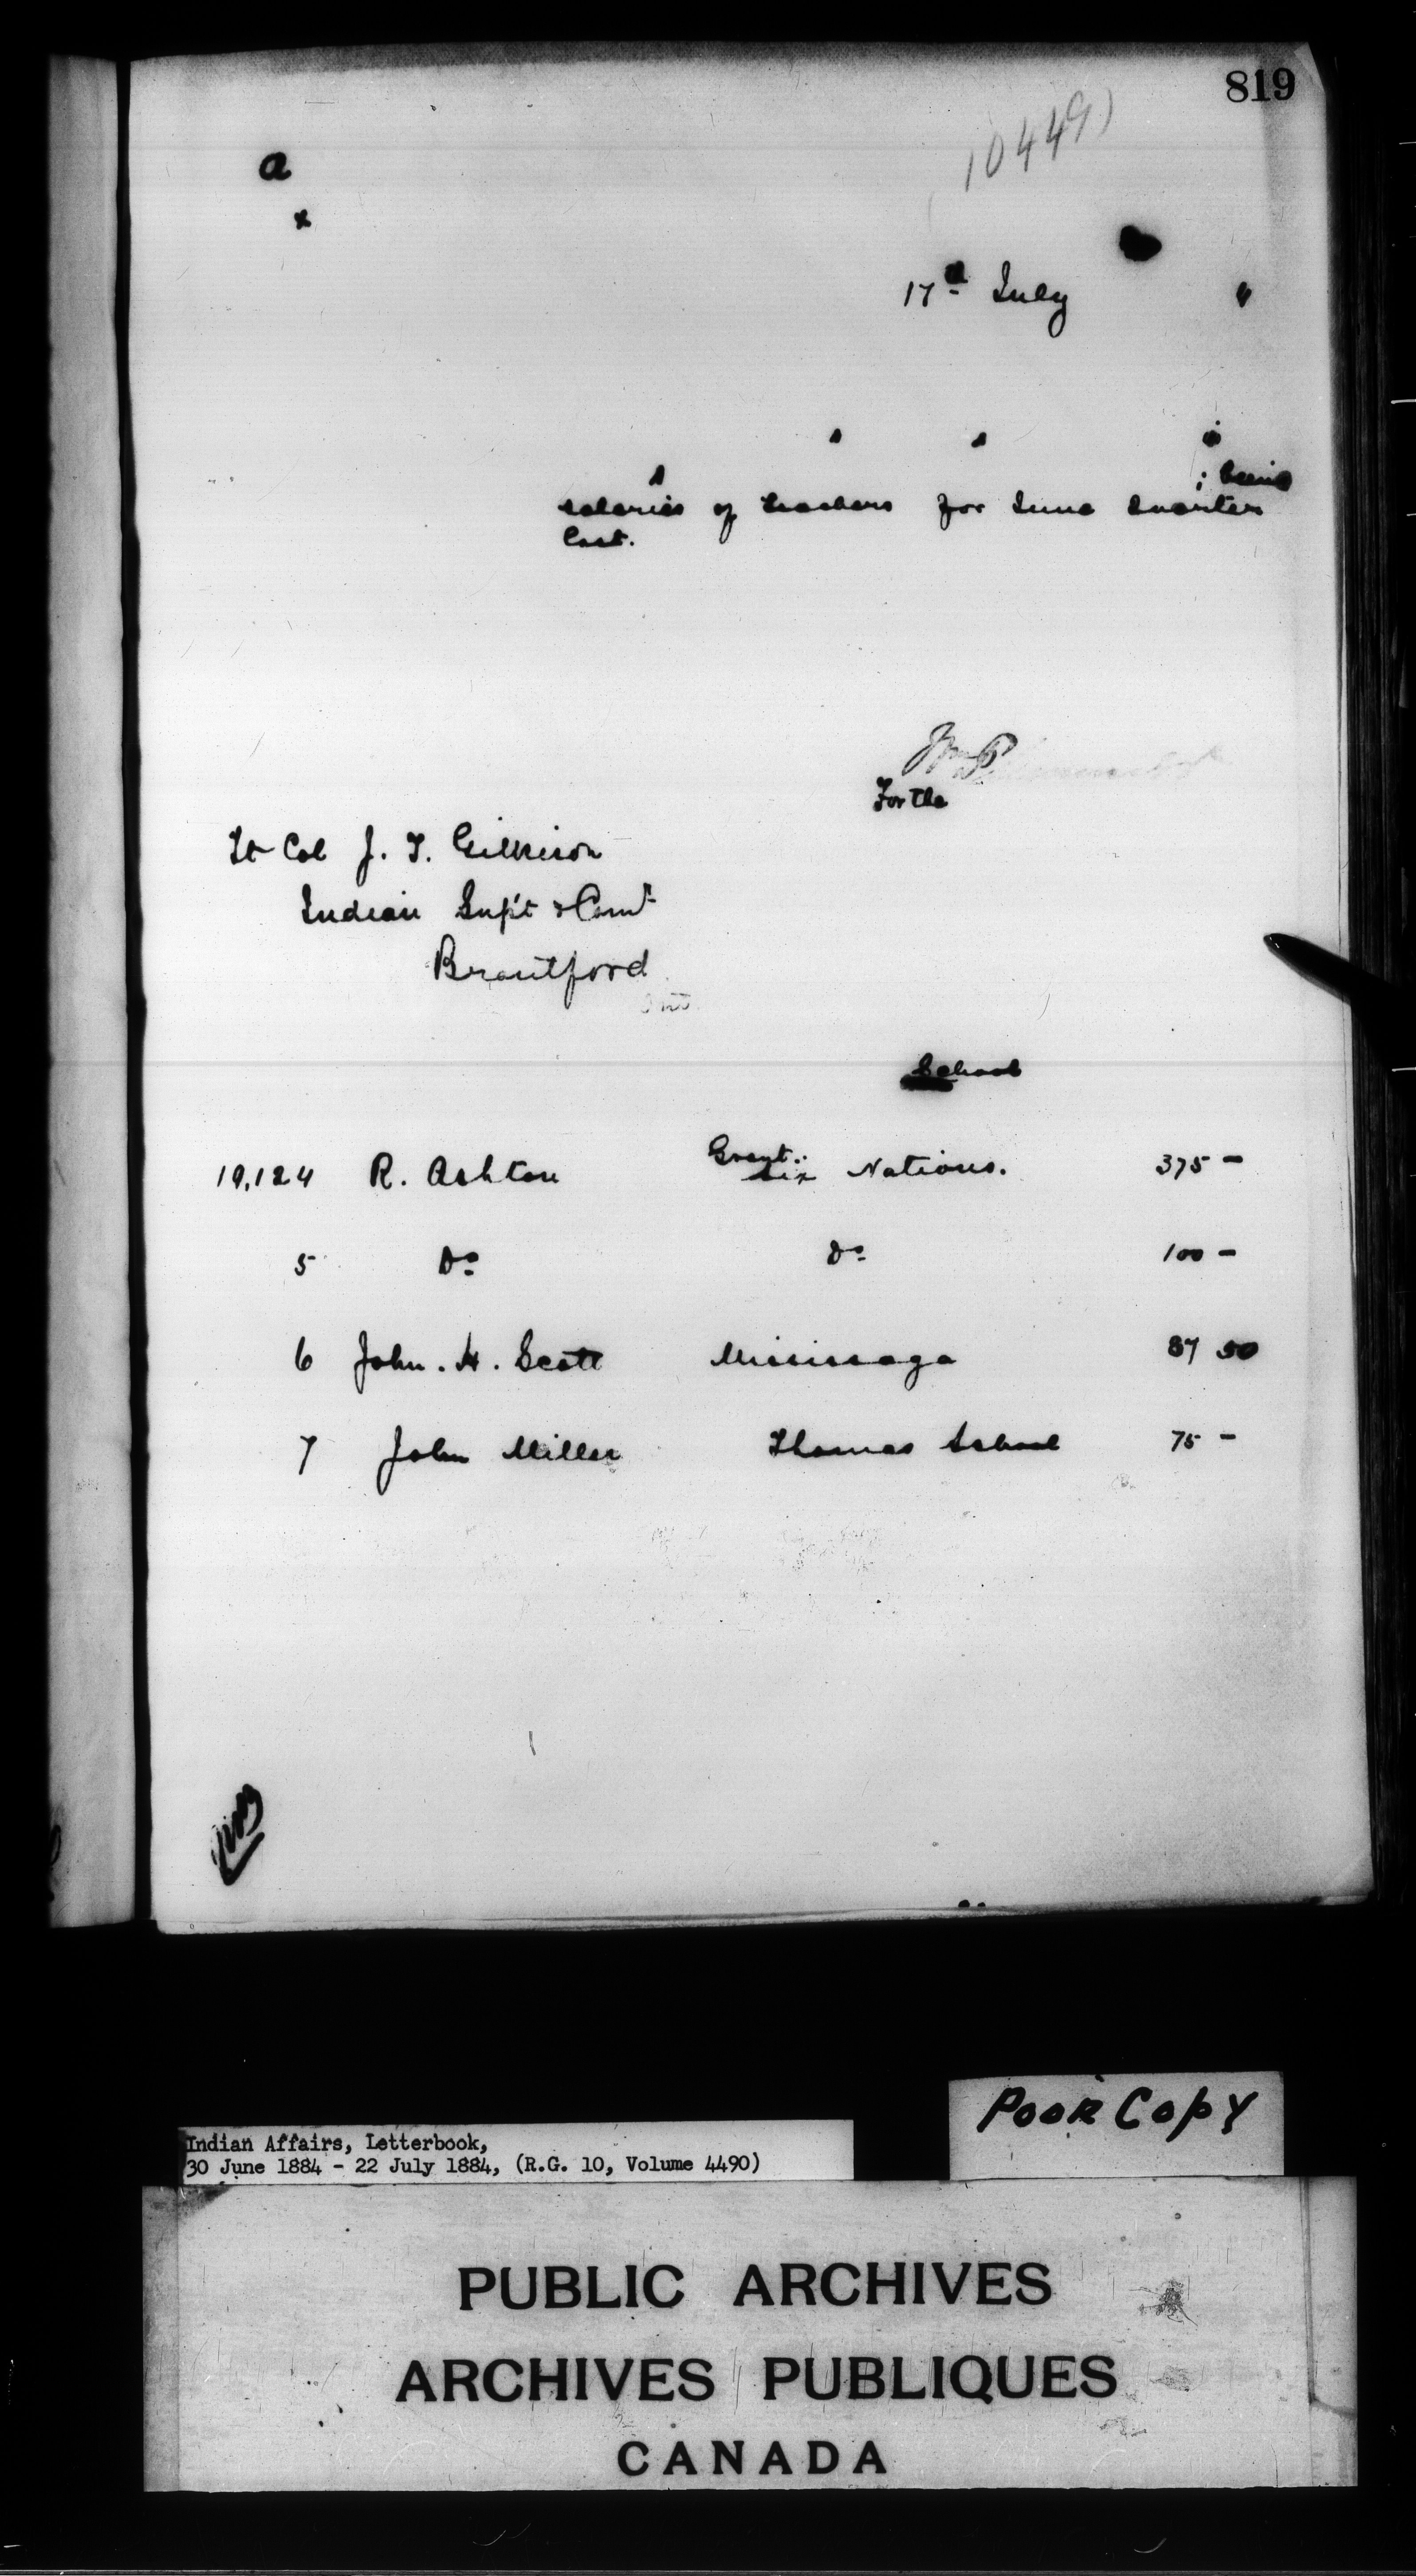 819
10449
a
x
17th July "
; being
salaries of teachers for June Quarter
last.
For the
Lt Col J. T. Gilkison
Indian Supt & Comr
Brantford
Ont
School
19,124 R. Ashton Grant.. Six Nations. 375 -
5 Do Do 100 -
6 John. H. Scott Mississaga 87 50
7 John Miller Thomas School 75 -
Poor Copy
Indian Affairs, Letterbook,
30 June 1884 - 22 July 1884, (R.G. 10, Volume 4490)
PUBLIC ARCHIVES
ARCHIVES PUBLIQUES
CANADA